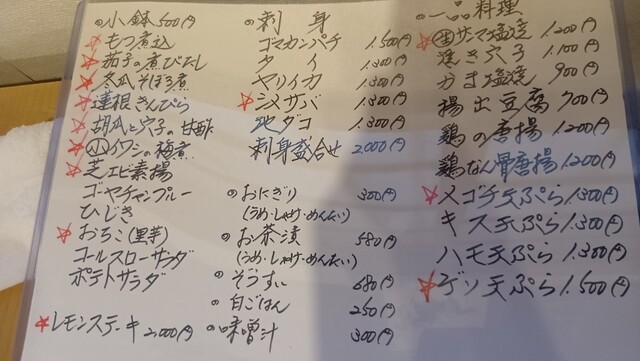 ◎小鉢 500円
☆もつ煮込
☆茄子の煮びたし
☆冬瓜そぼろ煮
☆蓮根きんぴら
☆胡瓜と穴子の甘酢
☆小イワシの梅煮
☆芝エビ素揚
ゴーヤチャンプルー
ひじき
☆おちこ(里芋)
コールスローサラダ
ポテトサラダ
☆レモンステーキ 2,000円
◎刺身
ゴマカンパチ 1,500円
タイ 1,300円
ヤリイカ 1,300円
☆シメサバ 1,300円
地ダコ 1,300円
刺身盛合せ 2,000円
◎おにぎり 300円
(うめ・しゃけ・めんたい)
◎お茶漬 580円
(うめ・しゃけ・めんたい)
◎ぞうすい 680円
◎白ごはん 250円
◎味噌汁 300円
◎一品料理
☆生サンマ塩焼 1,200円
焼き穴子 1,100円
かま塩焼 900円
揚出豆腐 700円
鶏の唐揚 1,200円
鶏なん骨唐揚 1,200円
☆メゴチ天ぷら 1,300円
キス天ぷら 1,300円
ハモ天ぷら 1,300円
☆ゲソ天ぷら 1,500円